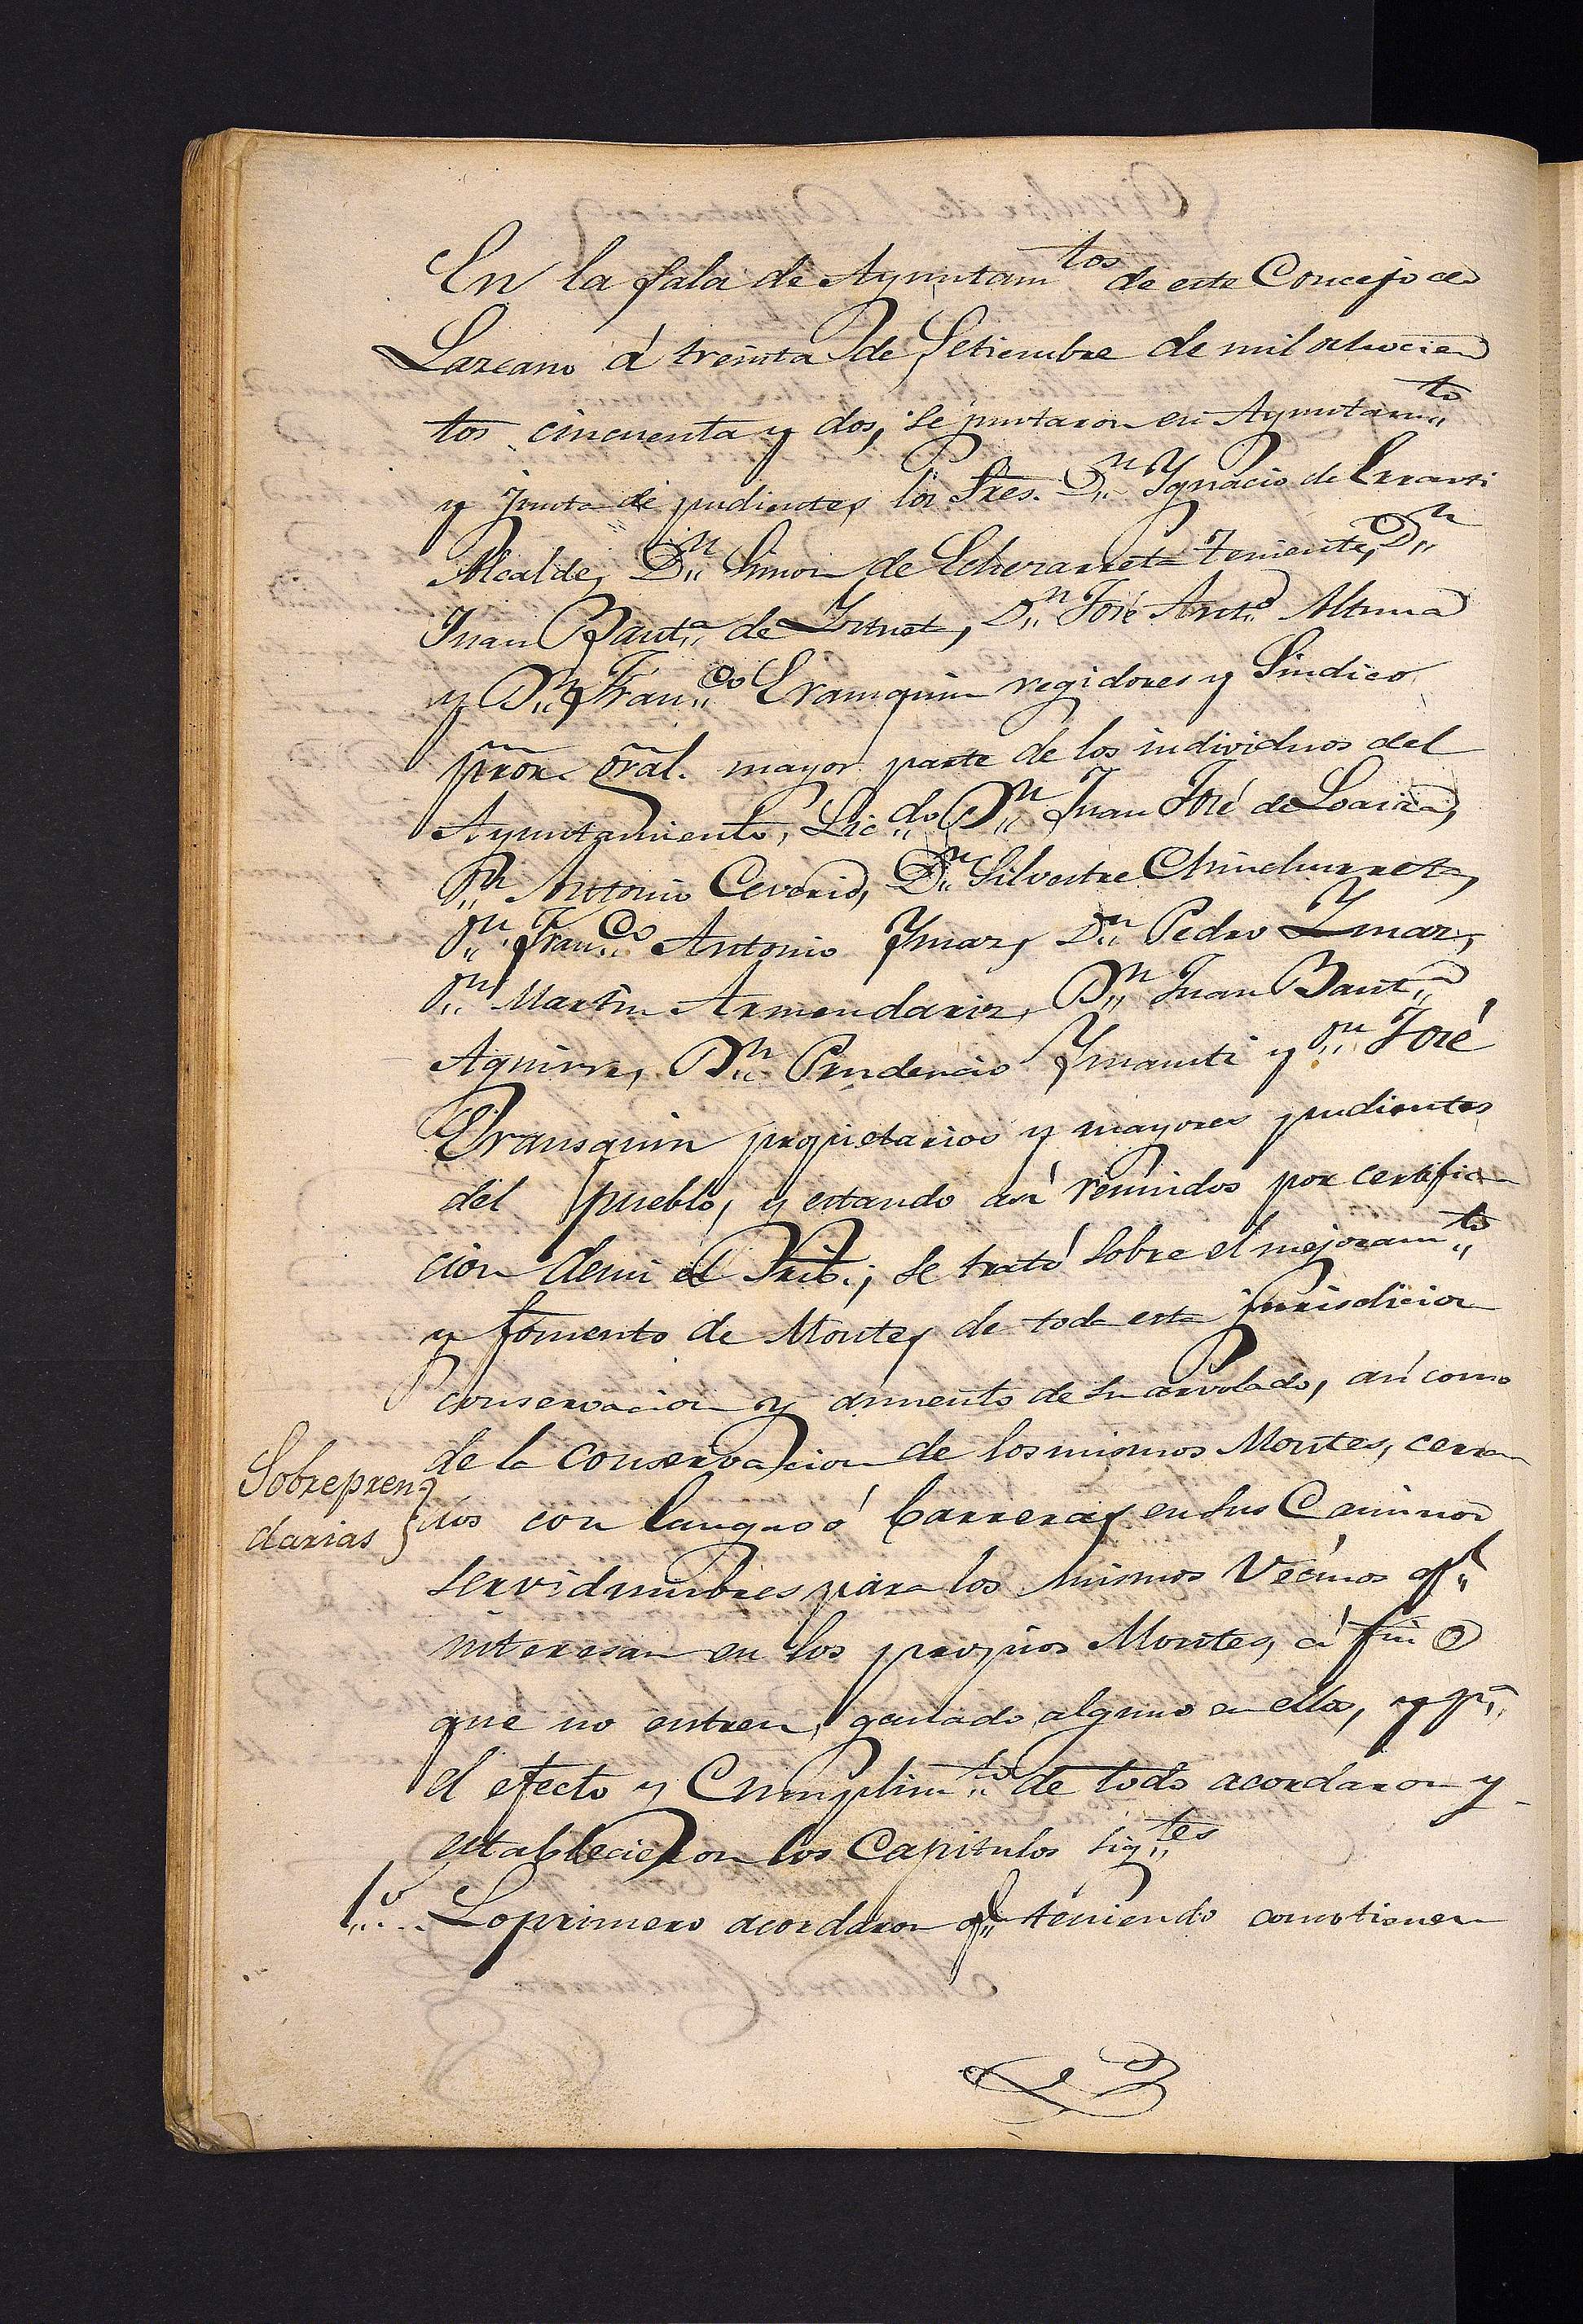 En la sala de Ayuntam.tos de este Concejo de
Lazcano á treinta de Setiembre de mil ochocien
tos cincuenta y dos, se juntaron en Ayuntam.to
y Junta de pudientes los Sres. D.n Ygnacio de Errasti
Alcalde, D.n Simon de Echezarreta Teniente, D.n
Juan Baut.a de , D.n José Ant.o Altuna
y D.n Fran.co Eransquin regidores y Sindico
pror. gral. mayor parte de los individuos del
Ayuntamiento, Lic.do D.n Juan José de Loaiza,
D.n Antonio Ceverio, D.n Silvestre Chinchurreta,
D.n Fran.co Antonio Ymaz, D.n Pedro Ymaz,
D.n Martin Armendariz, D.n Juan Baut.a
Aguirre, D.n Prudencio Ymausti y D.n José
Eransquin propietarios y mayores pudientes
del pueblo, y estando asi reunidos por certifica
cion de mi el Srio., se trató sobre el mejoram.to
y fomento de Montes de toda esta jurisdicion
conservacion y aumento de su arvolado, asi como
de la conservacion de los mismos Montes, cerra
Sobre pren
darias
dos con langas ó barreras en sus Caminos
servidumbres para los mismos Vecinos q.e
interesan en los propios Montes, á fin de
que no entren ganado alguno en ellos, y p.a
el efecto y Cumplim.to de todo acordaron y
establecieron los Capitulos sig.tes
1.o Lo primero acordaron q.e teniendo como tienen